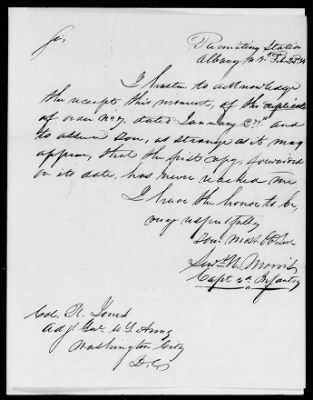 Sir,
Recruiting Station
Albany N. Y. Feb
I hasten to acknowledge
the receipt, this moment, of the duplicate
of order No 9, dated January and
to assure you, as strange as it may
appear, that the first copy, forwarded
on its date, has never reached me
I have the honor to be,
very respectfully
Your Most Ob Svt
Morris
Capt 3d Infantry
Col. R. Jones
Adjt Genl U S Army
Washington City
D.C.